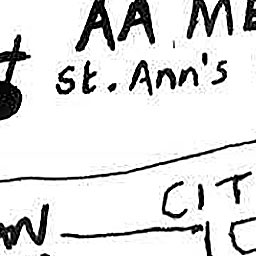 AA ME
St. Ann's
CIT